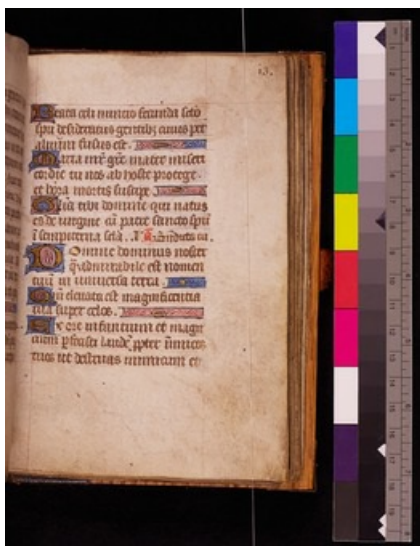 13.
Beata celi nuncio fecunda scto
spu desideratus gentibz cuius per
aluum fusus est.
Maria mr gre mater miseri
cordie tu nos ab hoste protege
et hora mortis suscipe.
Gloria tibi domine qui natus
es de virgine cu patre sancto spu
i sempiterna scla.
Domine dominus noster
q admirabile est nomen
tuu in universa terra.
Qm elevata est magnificentia
tua super celos.
Ex ore infantium et
pfecisti laude ppter
tuos ut destruas inimicum et